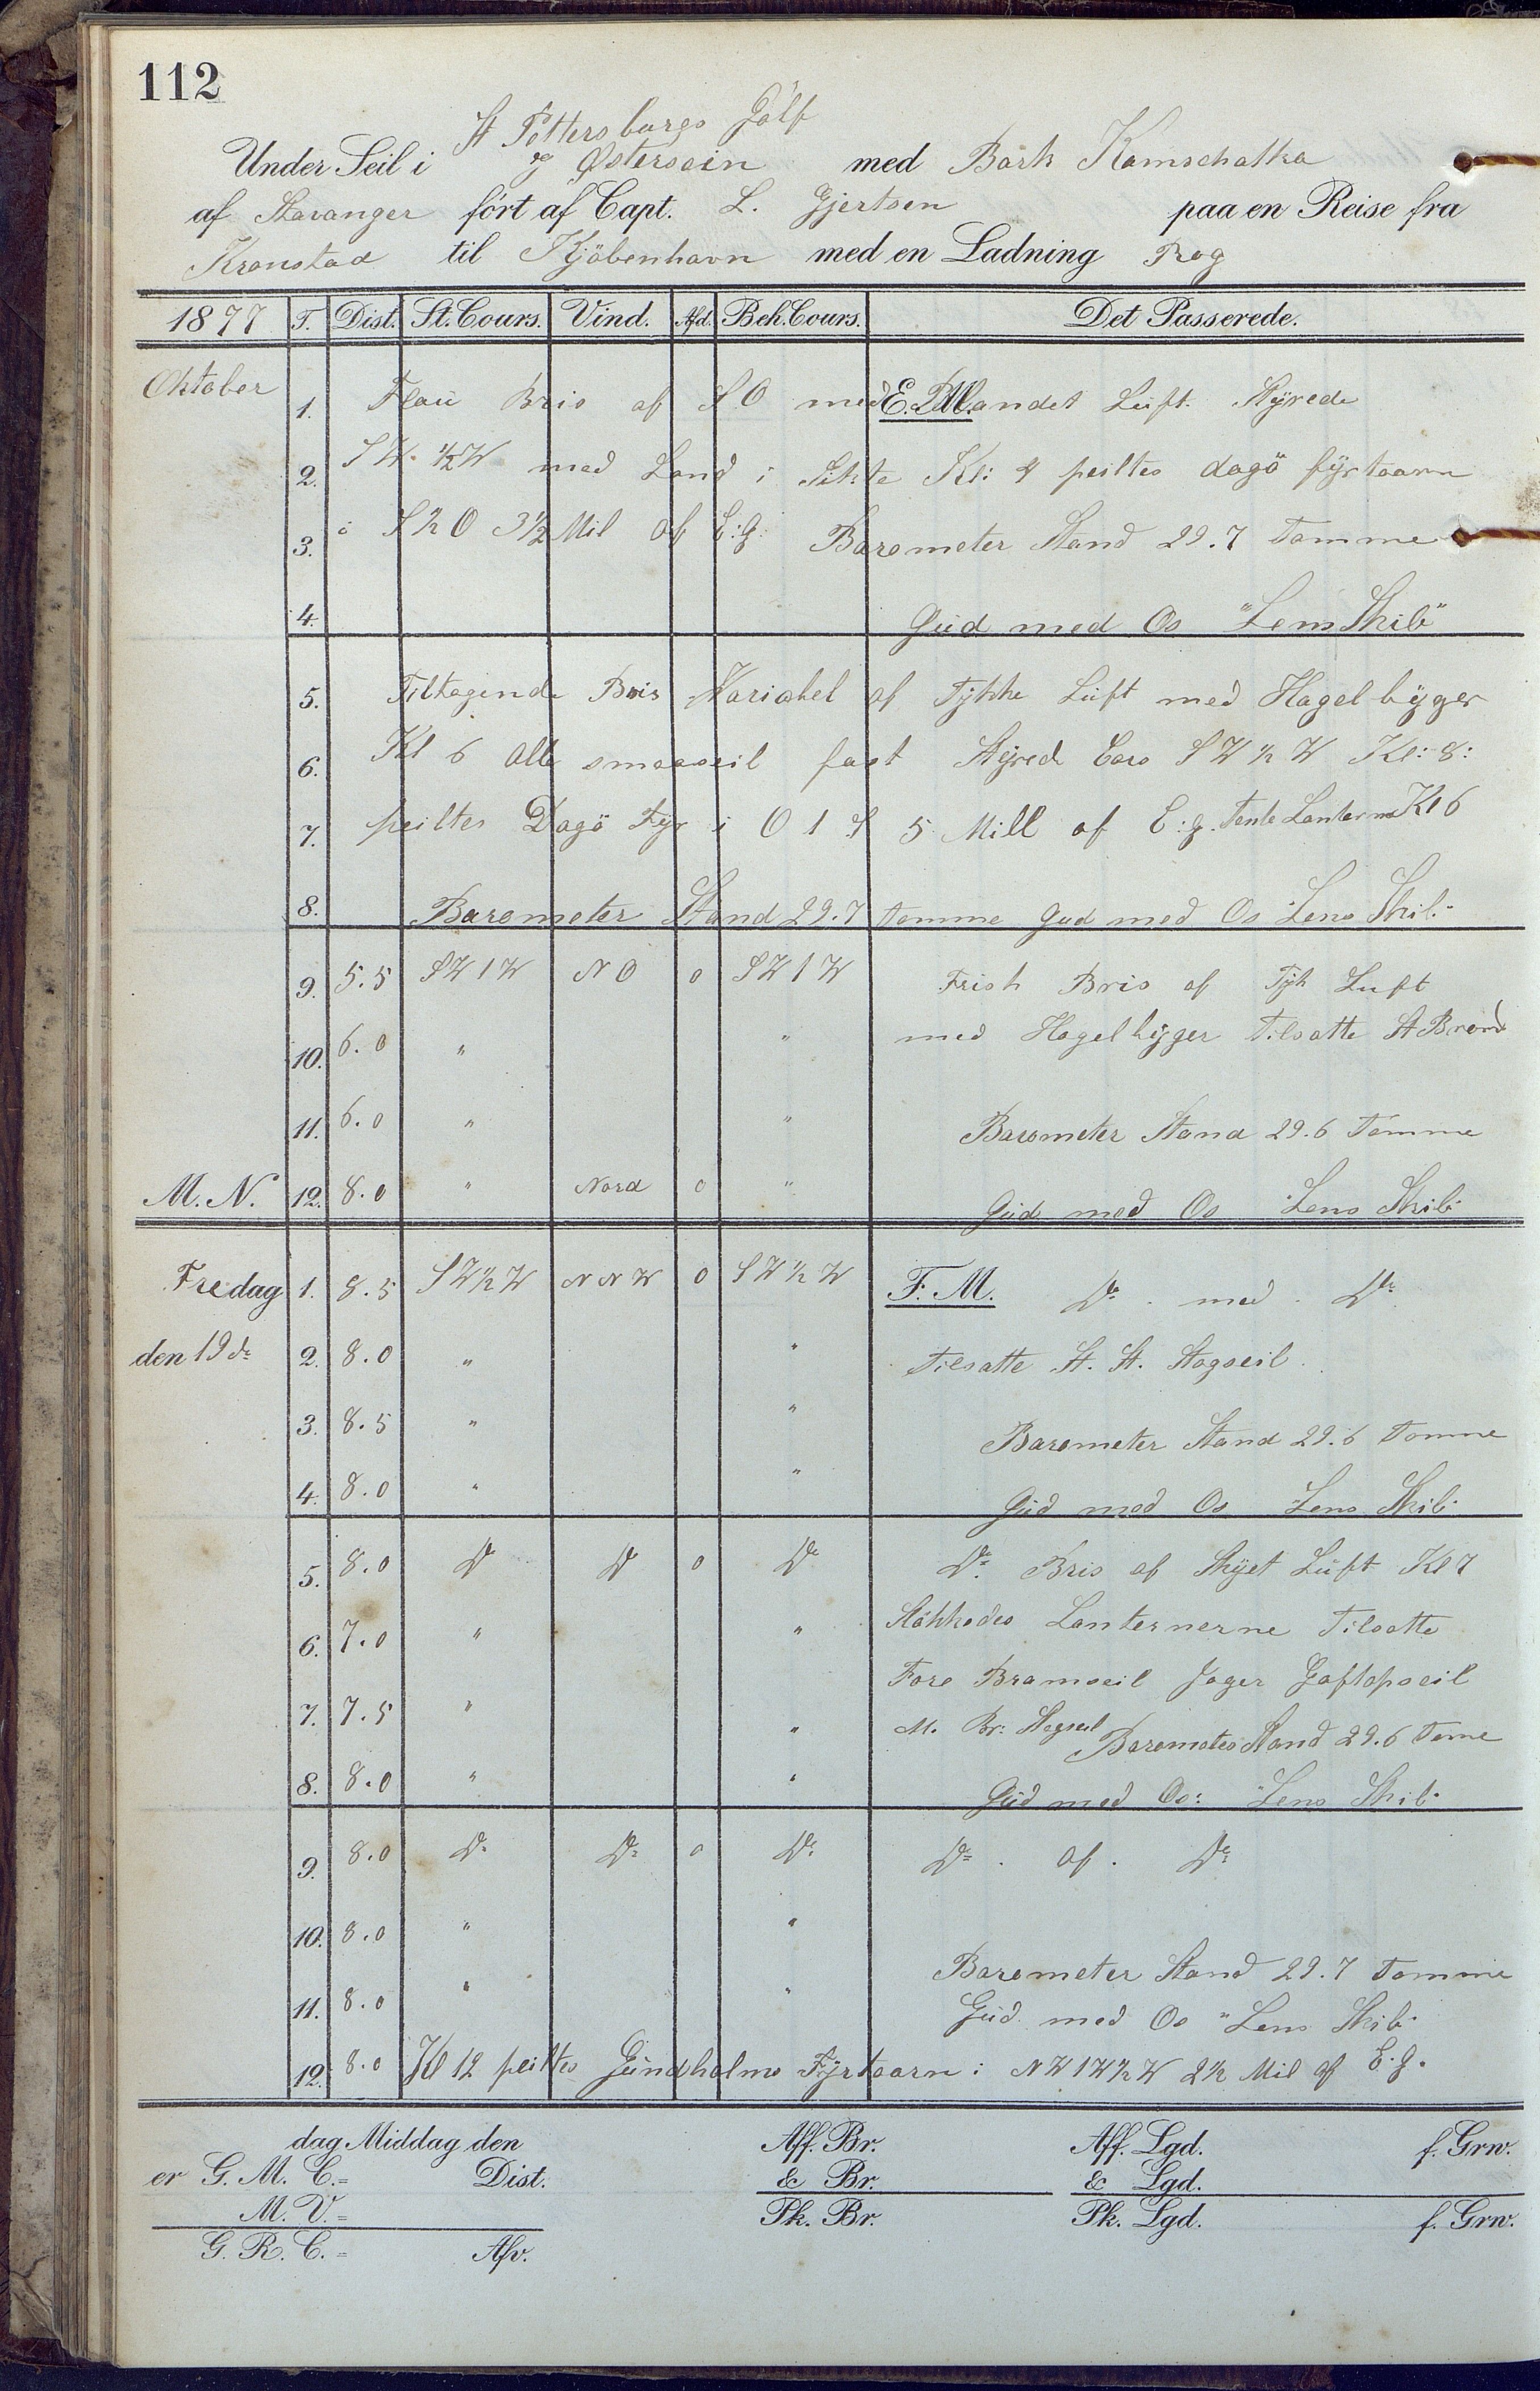 112
St Pettersburgs Gólf
Under Seil i og Østersøin med Bark Kamschatka
af Stavanger ført af Capt. L. Gjertsen paa en Reise fra
Kronstad til Kjöbenhavn med en Ladning Rog
1877 T. Dist. St. Cours. Vind. Afd. Beh. Cours. Det Passerede.
Oktober 1. Flau Bris af SO med E.M. Blandet Luft Styrede
2. SW. ½ W med Land i Sikte Kl: 4 peiltes dagö fyrtaarn
3. i S ½ O 3½ Mil af E:G: Barometer Stand 29.7 Tomme
4. Gud med Os "Lens Skib"
5. Tiltagende Bris Variabel af Tykke Luft med Hagelbyger
6. Kl 6 alle smaaseil fast Styred Cors SW ½ W Kl: 8:
7. peiltes Dagö Fyr i O 1 S 5 Mill af E:g. Tente Lanterne Kl 6
8. Barometer Stand 29.7 tomme Gud med Os "Lens Skib"
9. 5.5 SW 1 W NO 0 SW 1 W Frisk Bris af Tyk Luft
10. 6.0 " " med Hagelbyger Tilsatte St Bremd
11. 6.0 " " Barometer Stand 29.6 Tomme
M. N. 12. 8.0 " Nord 0 " Gud med Os "Lens Skib"
Fredag 1. 8.5 SW ½ W NNW 0 SW ½ W F. M. Do. med. Do
den 19de 2. 8.0 " " Tilsatte St. St. Stagseil.
3. 8.5 " " Barometer Stand 29.6 Tomme
4. 8.0 " " Gud med Os "Lens Skib"
5. 8.0 Do Do 0 Do Do. Bris af Skyet Luft Kl 7
6. 7.0 " " Slökkedes Lanternerne Tilsatte
Fore Bramseil Jager Gaftopseil
7. 7.5 " " M. Br: Stagseil Barometer Stand 29.6 Tome
8. 8.0 " " Gud med Os: "Lens Skib"
9. 8.0 Do Do 0 Do Do. af. Do
10. 8.0 " "
Barometer Stand 29.7 Tomme
11. 8.0 " " Gud med Os "Lens Skib"
12. 8.0 Kl 12 peiltes Gundholms Fyrtaarn i NW 1 W ½ W 2½ Mil af E.g.
dag Middag den Aff. Br. Aff. Lgd. f. Grw.
er G. M. C. = Dist. & Br. & Lgd.
M. V. = Pk. Br. Pk. Lgd. f. Grw.
G. R. C. = Afv.